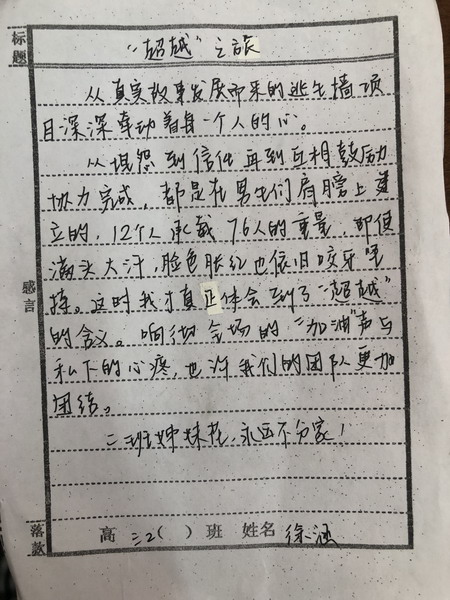 标题
"超越"之旅
从真实故事发展而来的逃生墙项
目深深牵动着每一个人的心。
从埋怨到信任再到互相鼓励
协力完成，都是在男生们肩膀上建
立的，12个人承载76人的重量，即使
满头大汗，脸色胀红也依旧咬牙坚
持。这时我才真正体会到了"超越"
的含义。响彻全场的"加油"声与
私下的心疼，也许我们的团队更加
团结。
二班姊妹花，永远不分家！
感言
落款
高三2( )班 姓名 徐涵